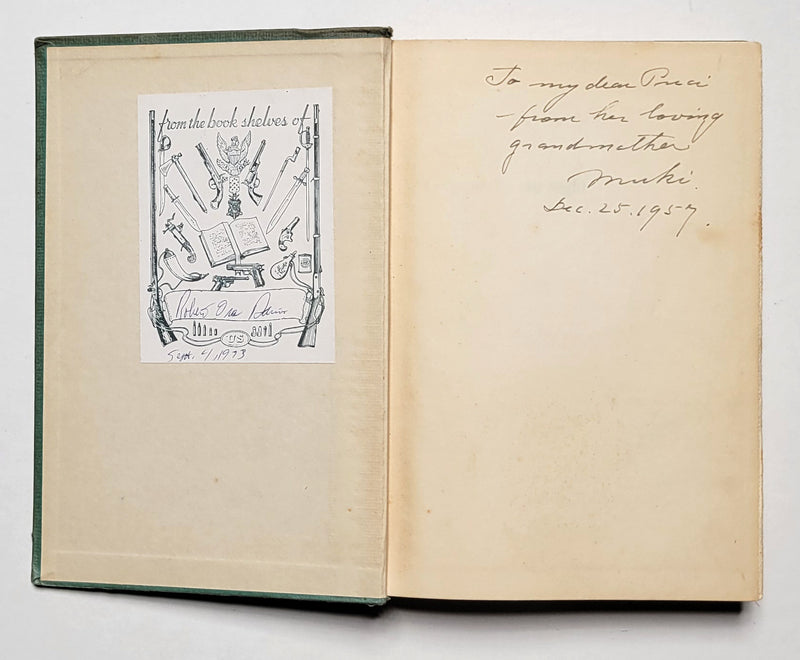 from the book shelves of
Robert Ira
US
Sept. 4, 1973
To my dear
-from her loving
grandmother
Muki.
Dec. 25. 1957.